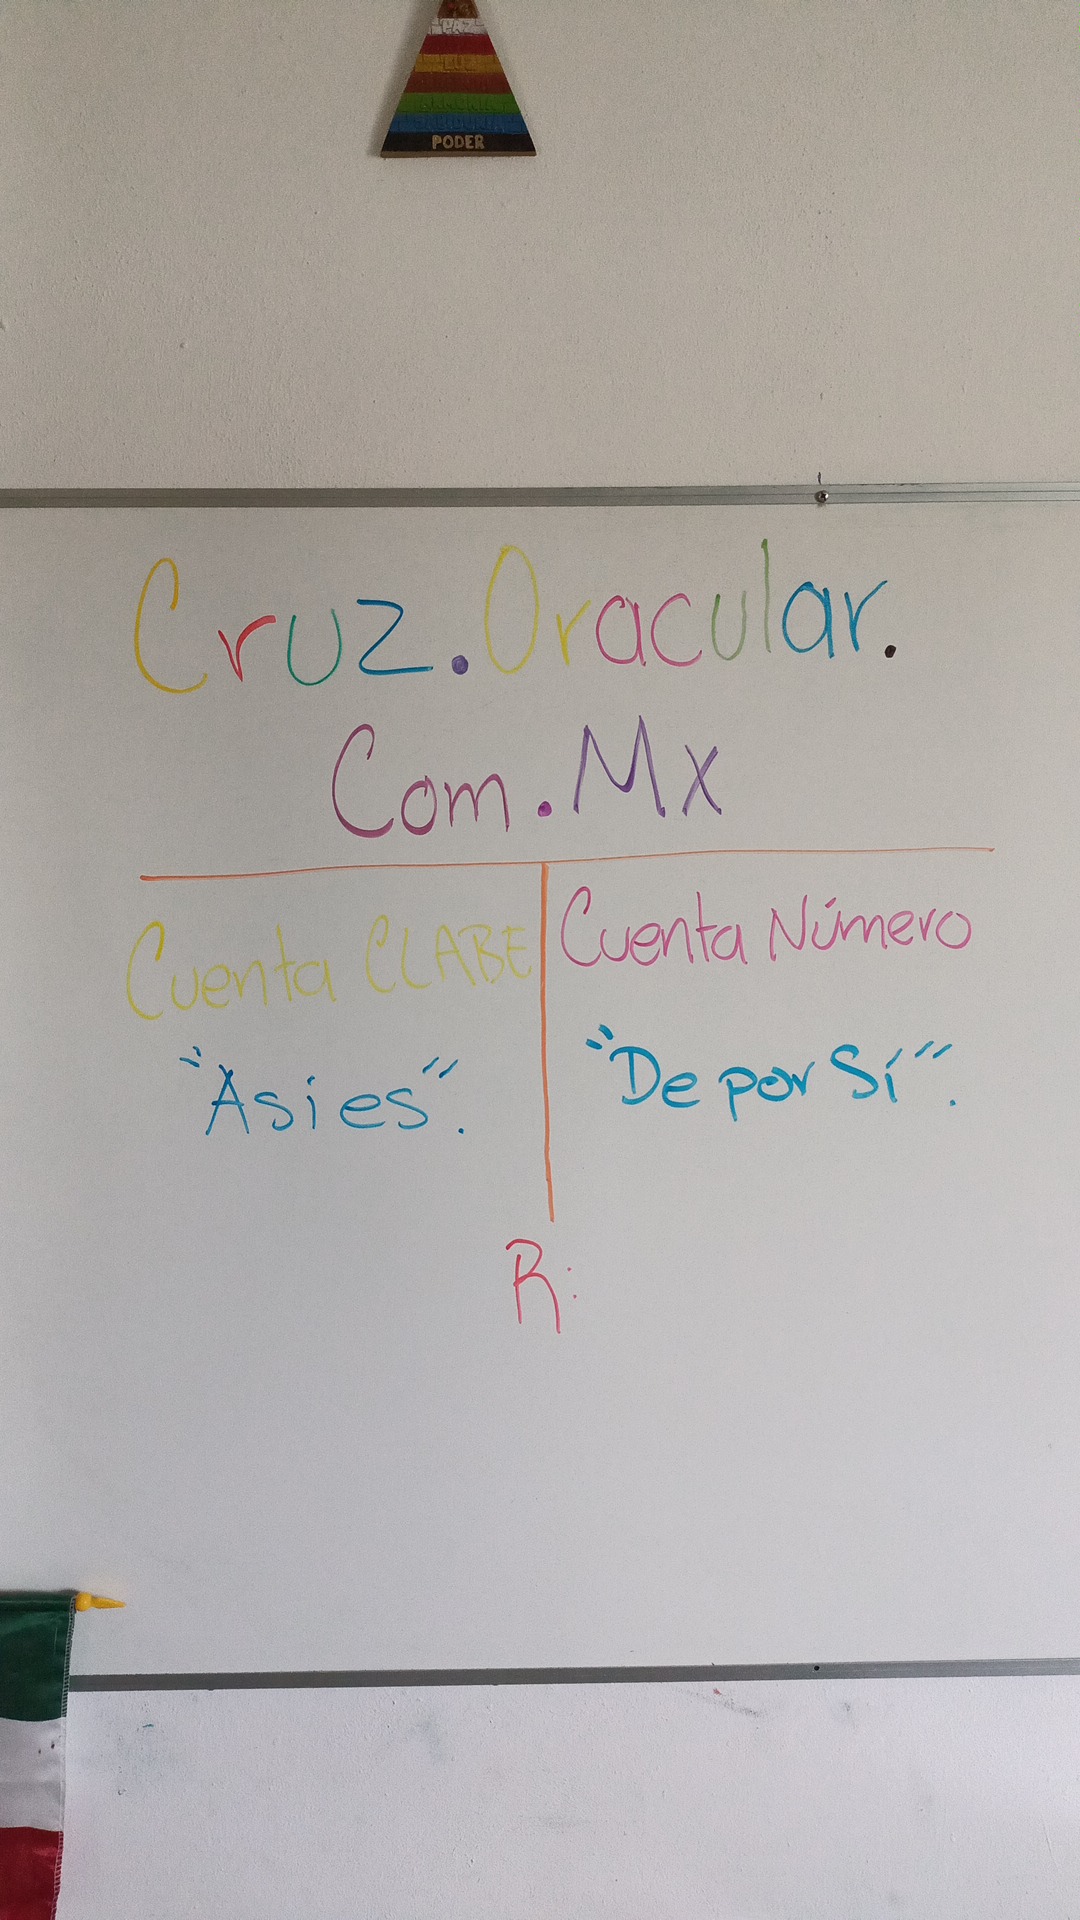 PAZ
LUZ
PODER
Cruz.Oracular.
Com.Mx
Cuenta CLABE
Cuenta Número
"Asi es".
"De por Sí".
R: